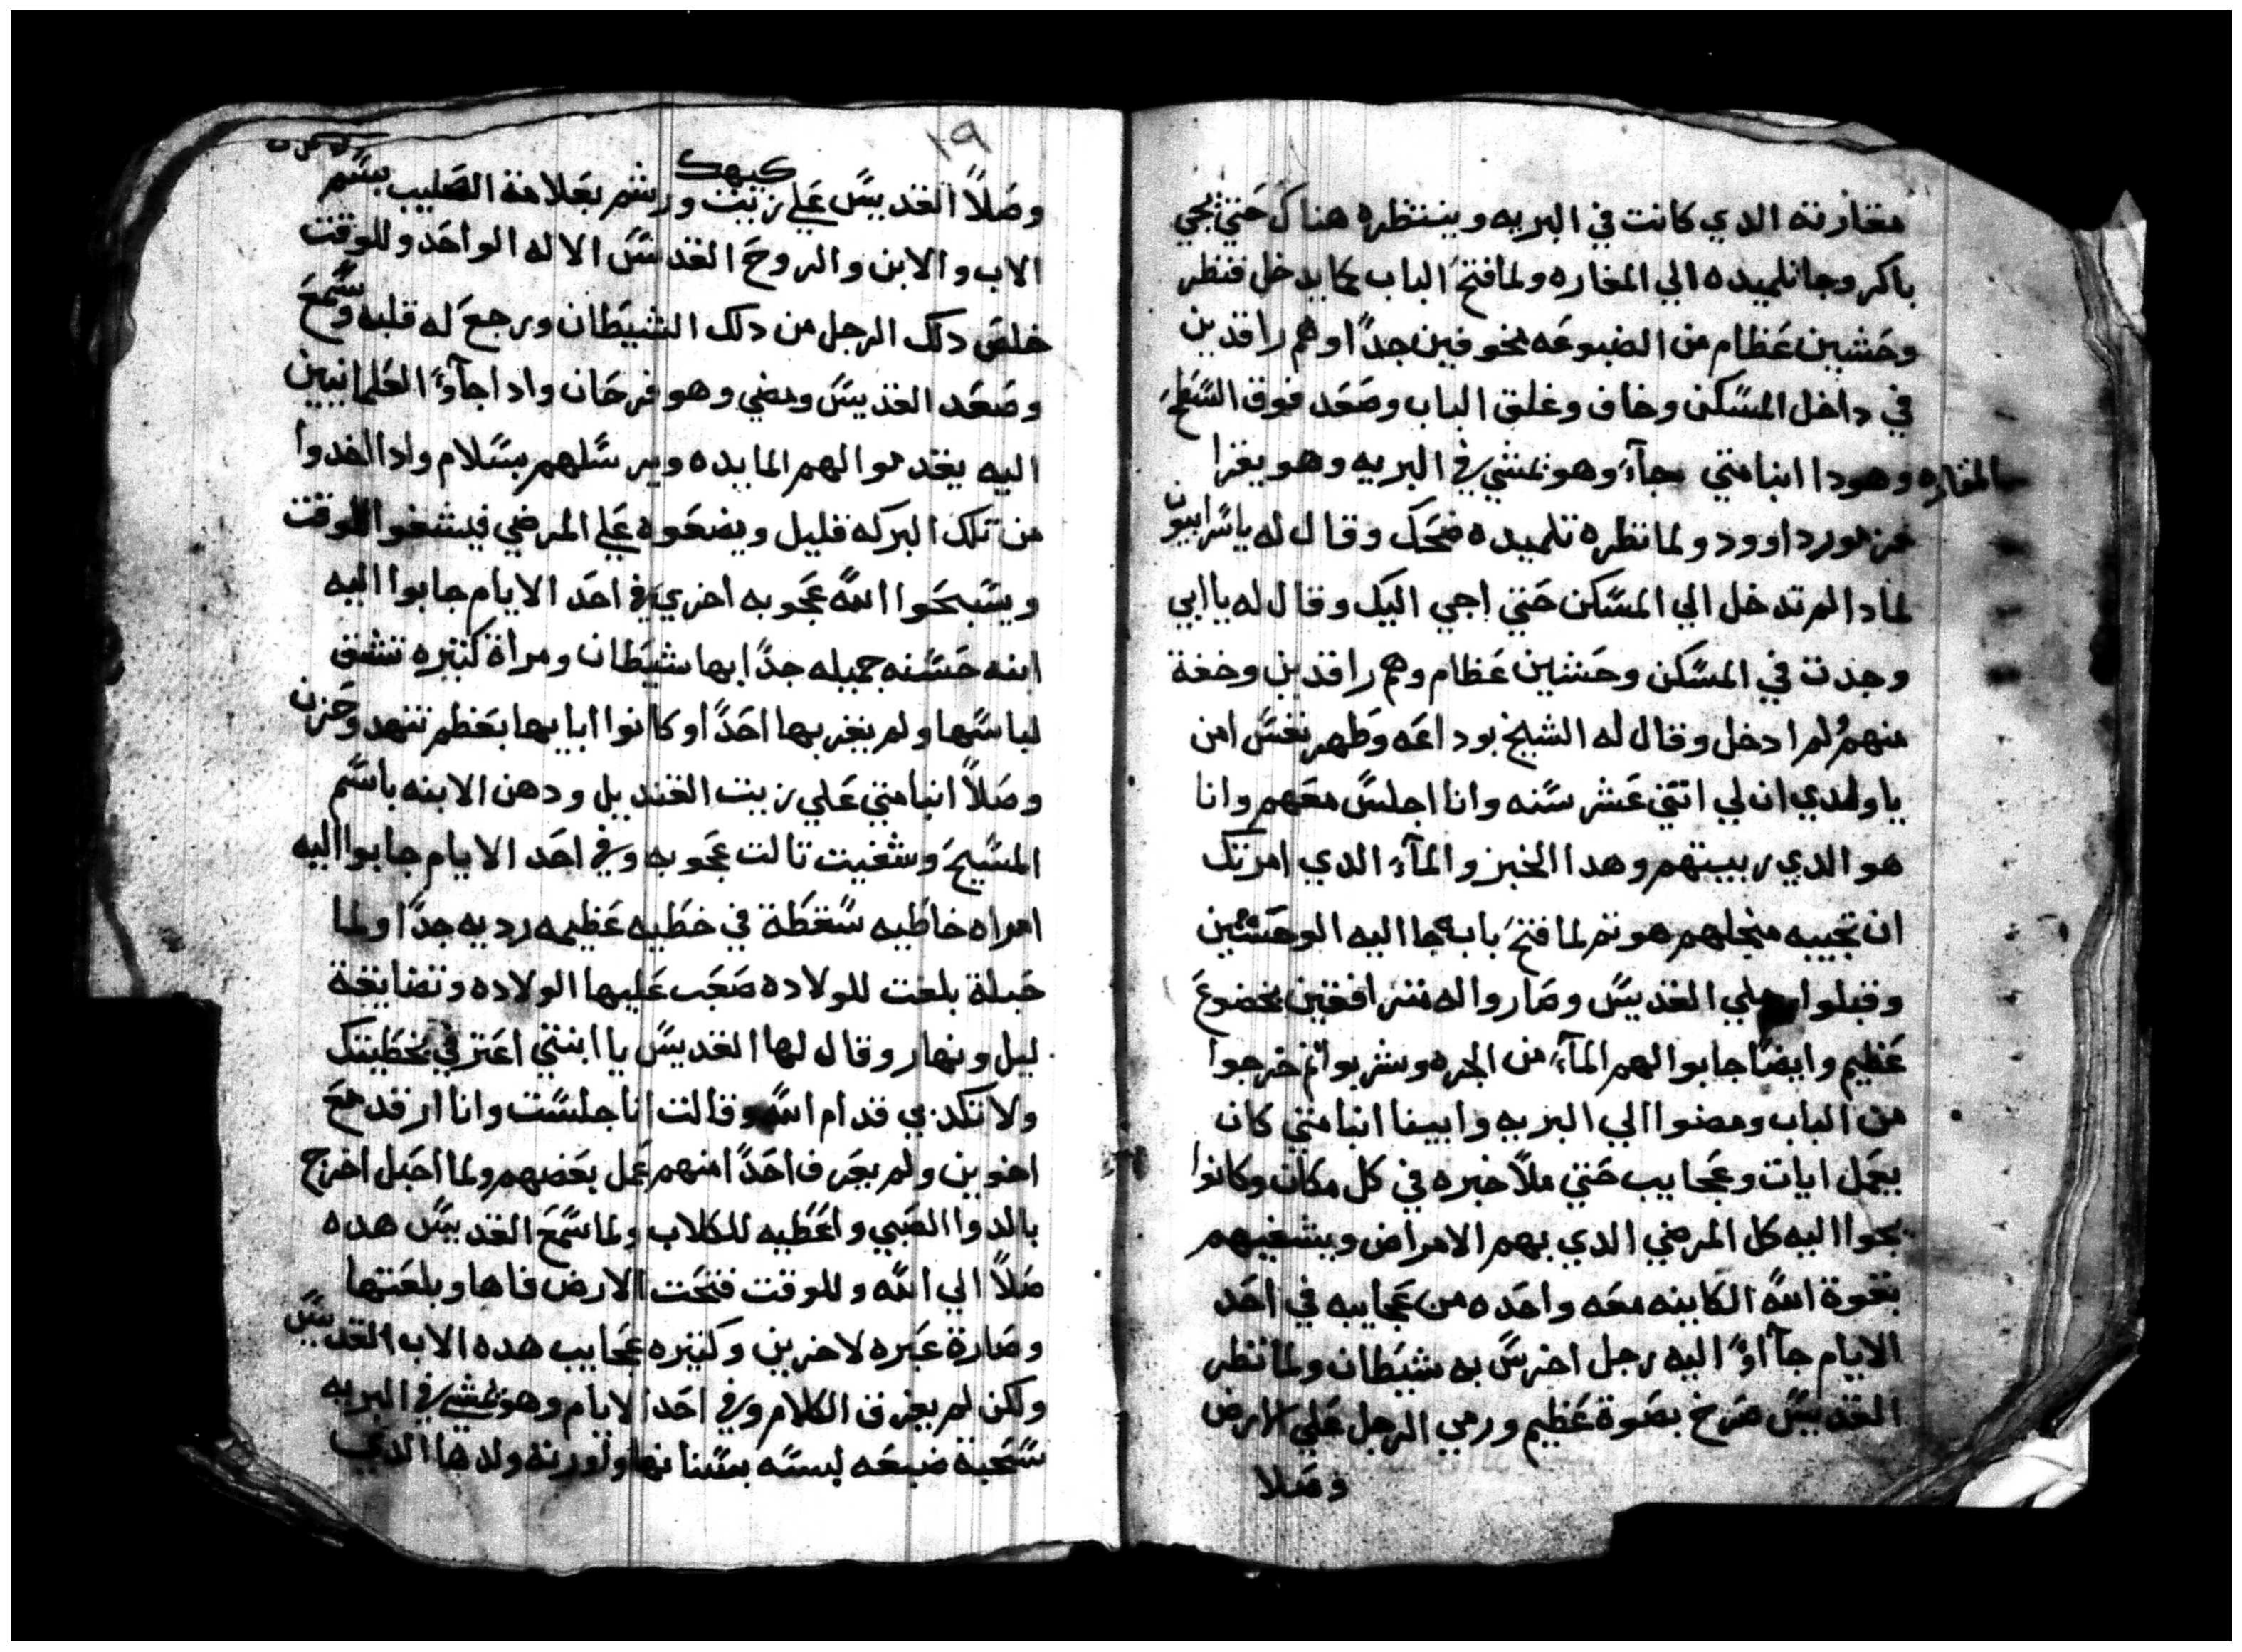 مغارته الدي كانت في البريه وينتظره هناك حتي يجي
باكر وجا تلميده الي المغاره ولما فتح الباب كما يدخل فنظر
وحشين عظام من الضبوعه مخوفين جدًا وهم راقدين
في داخل المسكن وخاف وغلق الباب وصعد فوق السطح
المغاره وهودا انبا متي جآء وهو يمشي في البريه وهو يقرا
مزمور داوود ولما نظره تلميده ضحك وقال له يا سرابيون
لمادا لم تدخل الي المسكن حتي اجي اليك وقال له يا ابي
وجدت في المسكن وحشين عظام وهم راقدين وخفة
منهم لم ادخل وقال له الشيخ بوداعه وطهر نفس امن
يا ولدي ان لي اتني عشر سنه وانا اجلس معهم وانا
هو الدي ربيتهم وهدا الخبز والمآء الدي امرتك
ان تجيبه منجلهم هو تم لما فتح بابه جا اليه الوحشين
وقبلوا رجلي القديس وصاروا له مترافقين بخضوع
عظيم وايضًا جابوا لهم المآء من الجره وشربوا تم خرجوا
من الباب ومضوا الي البريه وابينا انبا متي كان
يعمل ايات وعجايب حتي ملا خبره في كل مكان وكانوا
يجوا اليه كل المرضي الدي بهم الامراض ويشفيهم
بقوة الله الكاينه معه واحده من عجايبه في احد
الايام جآاوا اليه رجل اخرس به شيطان ولما نظر
القديس صرخ بصوة عظيم ورمي الرجل علي الارض
وصلا
١٩
كيهك
وصلًا القديس علي زيت ورشم بعلامة الصليب بسم
الاب والابن والروح القدس الاله الواحد وللوقت
خلص دلك الرجل من دلك الشيطان ورجع له قلبه وسمع
وصعد القديس ومضي وهو فرحان وادا جآوا العلمانيين
اليه يقدموا لهم المايده ويرسلهم بسلام وادا اخدوا
من تلك البركه قليل ويضعوه علي المرضي فيشفوا للوقت
ويسبحوا الله عجوبه اخري في احد الايام جابوا اليه
ابنه حسنه جميله جدًا بها شيطان ومراة كتيره تشق
لباسها ولم يقربها احدًا وكانوا ابايها بعظم تنهد وحزن
وصلًا انبا متي علي زيت القنديل ودهن الابنه باسم
المسيح وشفيت تالت عجوبه وفي احد الايام جابوا اليه
امراه خاطيه سقطة في خطيه عظيمه رديه جدًا ولما
حبلة بلغت للولاده صعب عليها الولاده وتضايقة
ليل ونهار وقال لها القديس يا ابنتي اعترفي بخطيتك
ولا تكدبي قدام الله وقالت انا جلست وانا ارقد مع
اخوين ولم يعرف احدًا منهم عمل بعضهم ولما احبل اخرج
بالدوا الصبي واعطيه للكلاب ولما سمع القديس هده
صلًا الي الله وللوقت فتحت الارض فاها وبلعتها
وصارة عبره لاخرين وكتيره عجايب هده الاب القديس
ولكن لم يعرف الكلام وفي احد الايام وهو يمشي في البريه
سحبة ضبعه لبسه بسنانها ولورته ولدها الدي